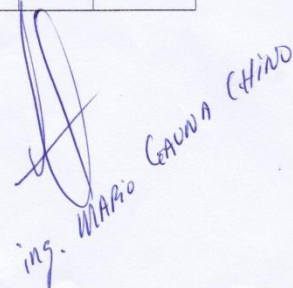 ing. MARIO GAUNA CHINO